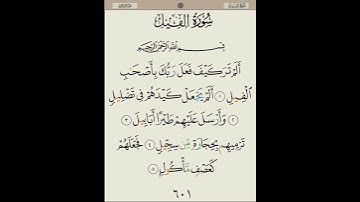 سُورَةُ الْفِيلِ
بِسْمِ اللَّهِ الرَّحْمَٰنِ الرَّحِيمِ
أَلَمْ تَرَ كَيْفَ فَعَلَ رَبُّكَ بِأَصْحَابِ
الْفِيلِ ١ أَلَمْ يَجْعَلْ كَيْدَهُمْ فِي تَضْلِيلٍ
٢ وَأَرْسَلَ عَلَيْهِمْ طَيْرًا أَبَابِيلَ ٣
تَرْمِيهِم بِحِجَارَةٍ مِّن سِجِّيلٍ ٤ فَجَعَلَهُمْ
كَعَصْفٍ مَّأْكُولٍ ٥
٦٠١